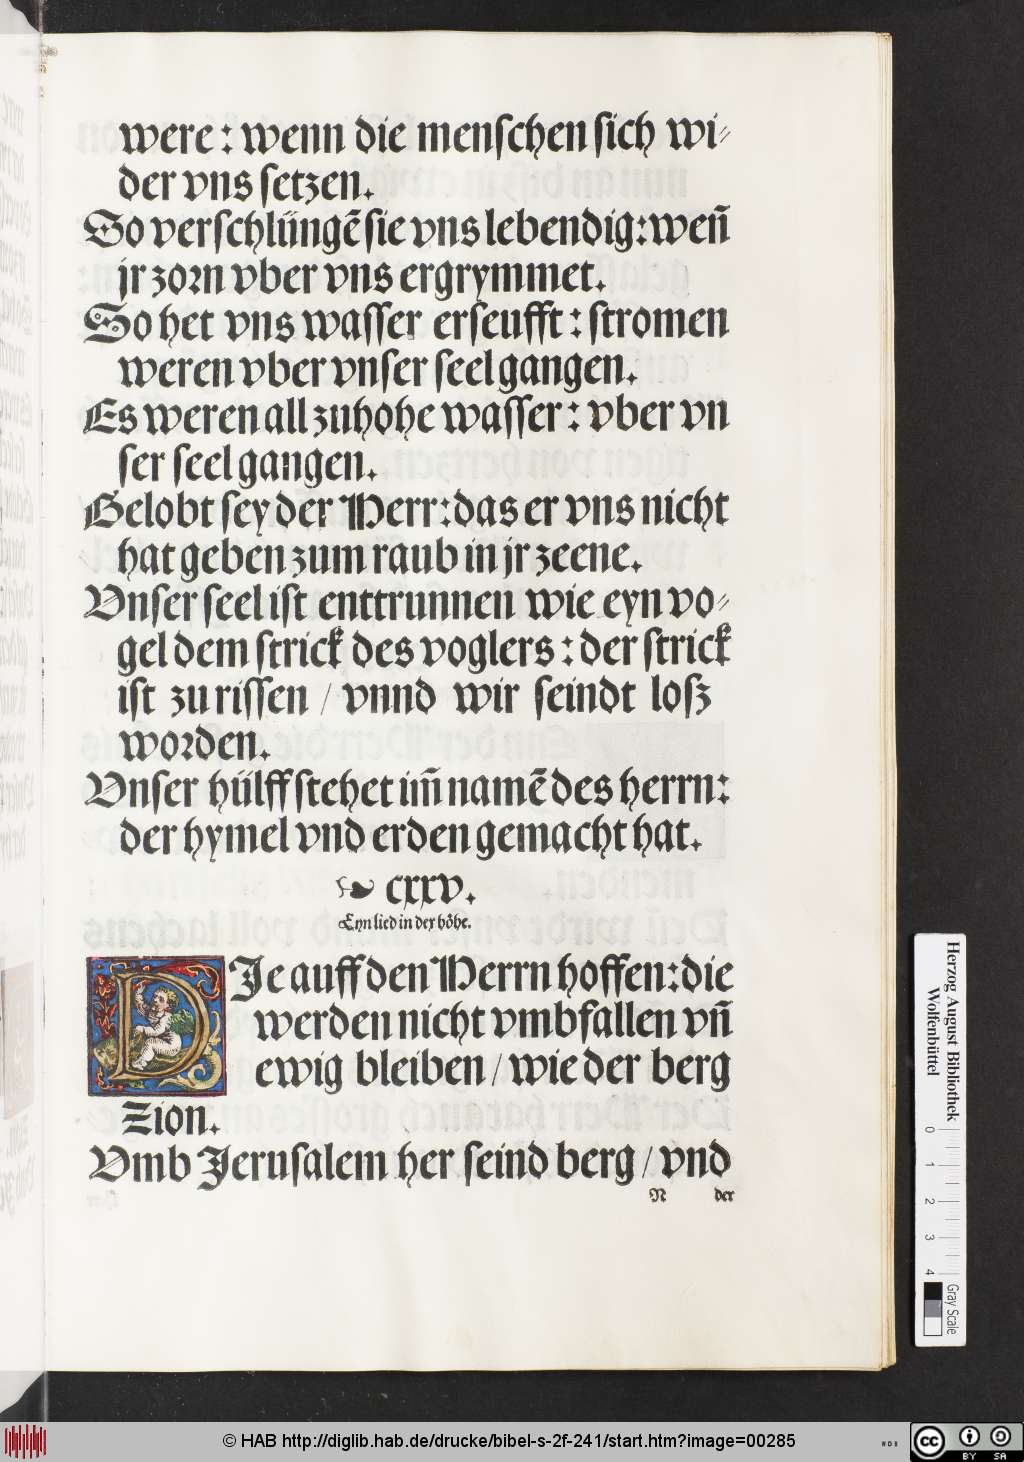 were : wenn die menſchen ſich wi⸗
der vns ſetzen.
So verſchlüngē ſie vns lebendig: weñ
jr zorn vber vns ergrymmet.
So het vns waſſer erſeufft : ſtromen
weren vber vnſer ſeel gangen.
Es weren all zuhohe waſſer : vber vn
ſer ſeel gangen.
Gelobt ſey der Herr: das er vns nicht
hat geben zum raub in jr zeene.
Vnſer ſeel iſt enttrunnen wie eyn vo⸗
gel dem ſtrick des voglers : der ſtrick
iſt zu riſſen / vnnd wir ſeindt loſz
worden.
Vnſer hülff ſtehet im̄ namē des herrn:
der hymel vnd erden gemacht hat.
❧ cxxv.
Eyn lied in der höhe.
DJe auff den Herrn hoffen: die
werden nicht vmbfallen vñ
ewig bleiben / wie der berg
Zion.
Vmb Jeruſalem her ſeind berg / vnd
N der
Herzog August Bibliothek
Wolfenbüttel
0 1 2 3 4
Gray Scale
© HAB http://diglib.hab.de/drucke/bibel-s-2f-241/start.htm?image=00285
WDB
cc BY SA